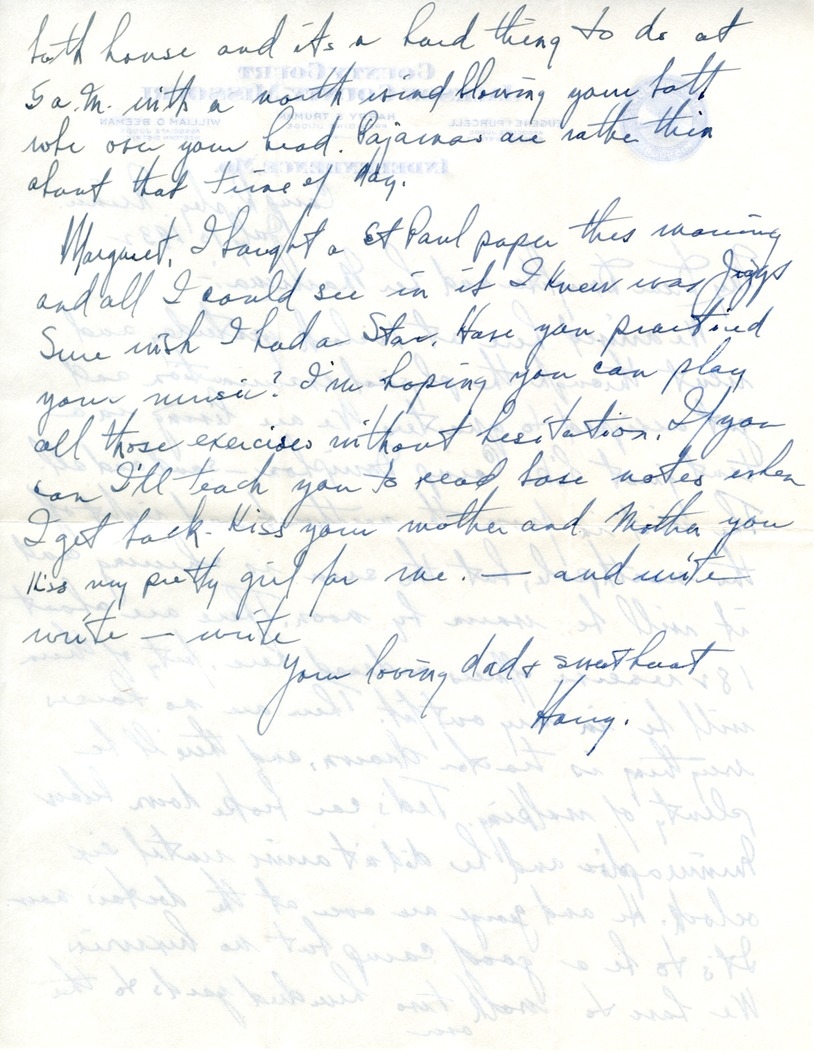 bath house and its a hard thing to do at
5 a.m. with a north wind blowing your bath
robe over your head. Pajamas are rather thin
about that time of day.
Margaret, I bought a St Paul paper this morning
and all I could see in it I knew was Jiggs
Sure wish I had a Star. Have you practiced
your music? I'm hoping you can play
all those exercises without hesitation. If you
can I'll teach you to read base notes when
I get back. Kiss your mother and Mother you
Kiss my pretty girl for me. — and write
write — write
Your loving dad & sweetheart
Harry.